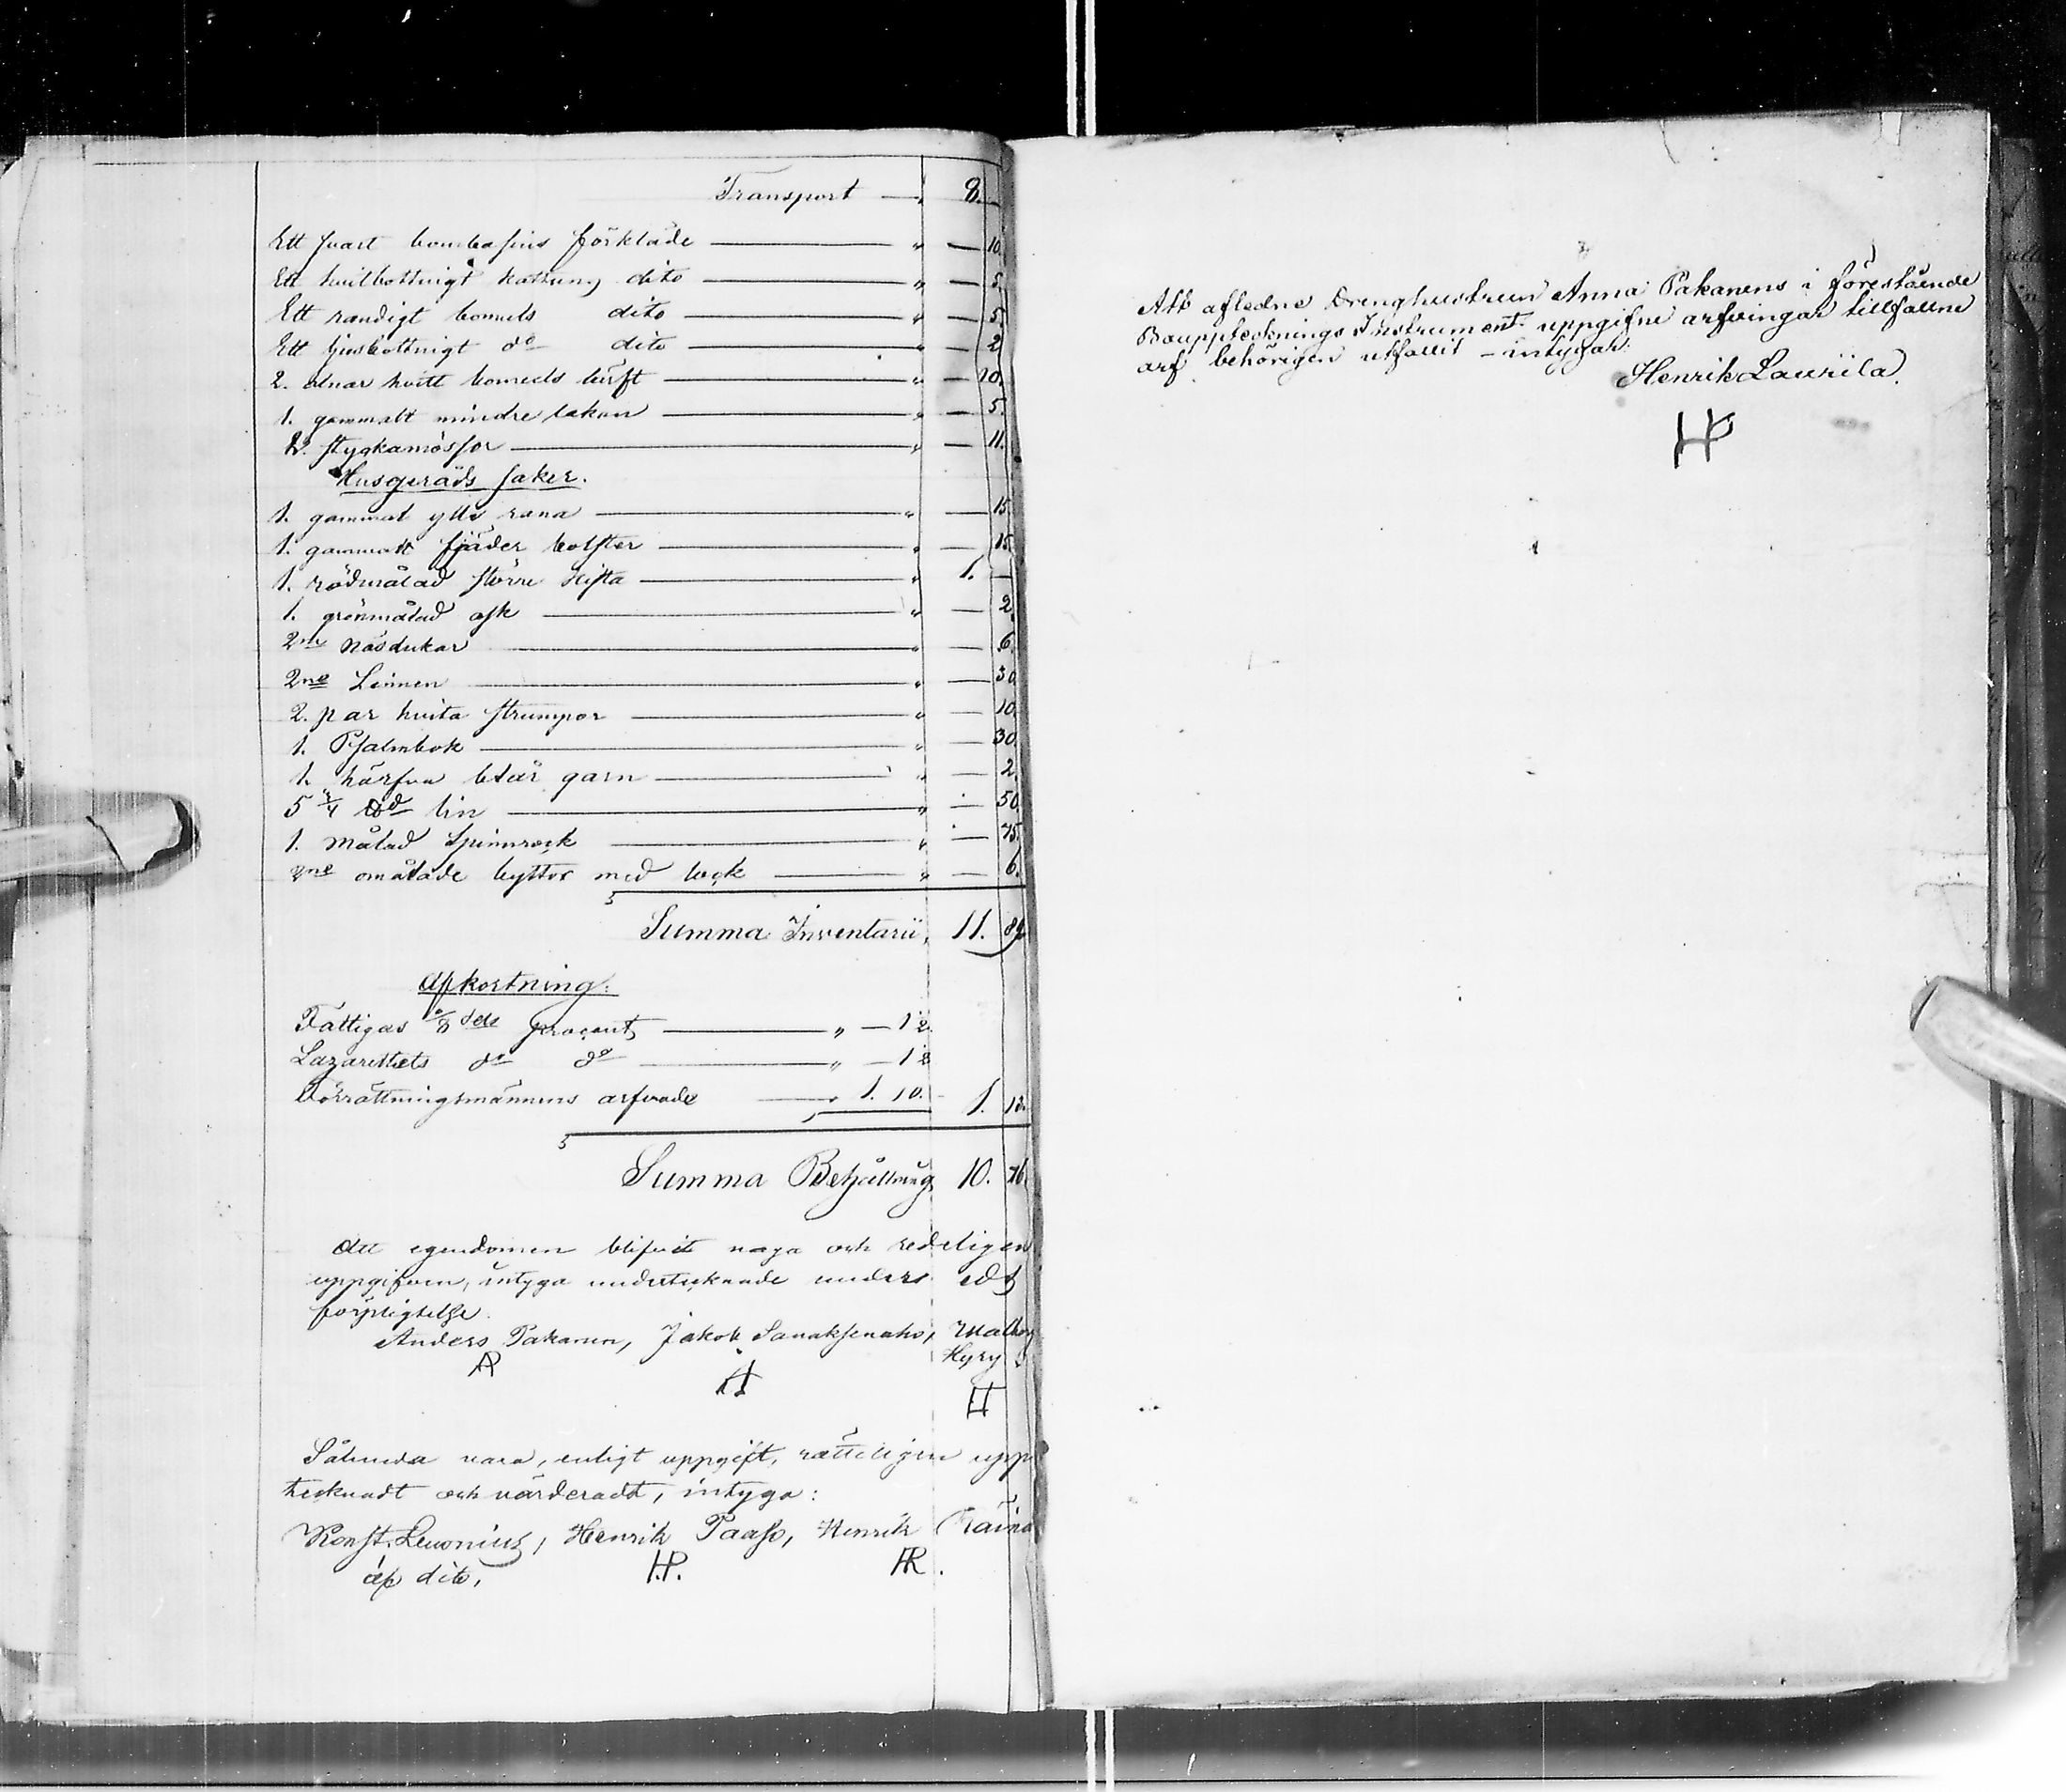 Transport — " 8. —
Ett svart bombasins förkläde — " — 10.
Ett hvitbottnigt kattuns dito — " — 5.
Ett randigt bomuls dito — " — 5.
Ett ljusbottnigt do dito — " — 2
2. alnar hvitt bomuls lärft — " — 20.
1. gammalt mindre lakan — " — 5.
2. stygkamössor — " — 11.
Husgeråds saker.
1. gammal ylle rana — " — 15
1. gammalt fjäder bolster — " — 15.
1. rödmålad större kista — " 1. —
1. grönmålad ask — " — 2.
2ne näsdukar — " — 6.
2ne Linnen — " — 30.
2. par hvita strumpor — " — 10.
1. Psalmbok — " — 30.
1. härfva blår garn — " — 2.
5 3/4 lin — " — 50.
1. målad Spinnrock — " — 75.
2ne omålade byttor med lock — " — 6.
Summa Inventarii, 11. 89
Afkortning.
Fattigas 1/8 dels procent — " — 1 2.
Lazarettets do do — " — 1 2
Förrättningsmännens arfvode — " 1. 10. 1. 13.
Summa Behållning 10. 76.
Att egendomen blifvit noga och redeligen
uppgifven, intyga undertecknade under eds
förpligtelse.
Anders Pakanen, Jakob Sanaksenaho, Walborg
Hyry
AP
Sålunda vara, enligt uppgift, rätteligen upp
tecknadt och värderadt, intyga:
Konst. Leuonius, Henrik Paaso, Henrik Räinä
af dito, H.P. HR.
Att afledne Drenghustrun Anna Pakanens i förestående
Bouppteckningsinstrument uppgifne arfvingar tillfallne
arf behörigen utfallit – intygar.
Henrik Laurila.
HP